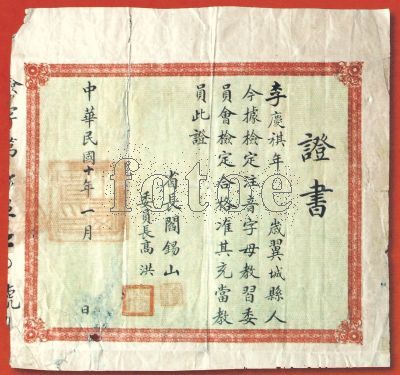 證書
李慶祺年 歲翼城縣人
今據檢定注音字母教習委
員會檢定合格准其充當教
員此證
省長閻錫山
委員長高洪
中華民國十年一月 日
fotoe